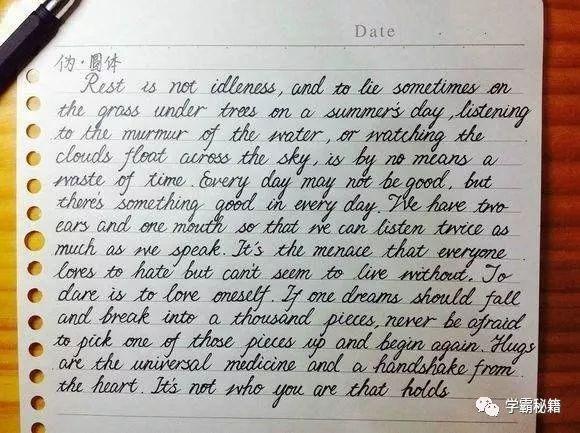 Date
伪·圆体
Rest is not idleness, and to lie sometimes on
the grass under trees on a summer's day, listening
to the murmur of the water, or watching the
clouds float across the sky, is by no means a
waste of time. Every day may not be good, but
there's something good in every day. We have two
ears and one mouth so that we can listen twice as
much as we speak. It's the menace that everyone
loves to hate but can't seem to live without. To
dare is to love oneself. If one dreams should fall
and break into a thousand pieces, never be afraid
to pick one of those pieces up and begin again. Hugs
are the universal medicine and a handshake from
the heart. It's not who you are that holds
学霸秘籍